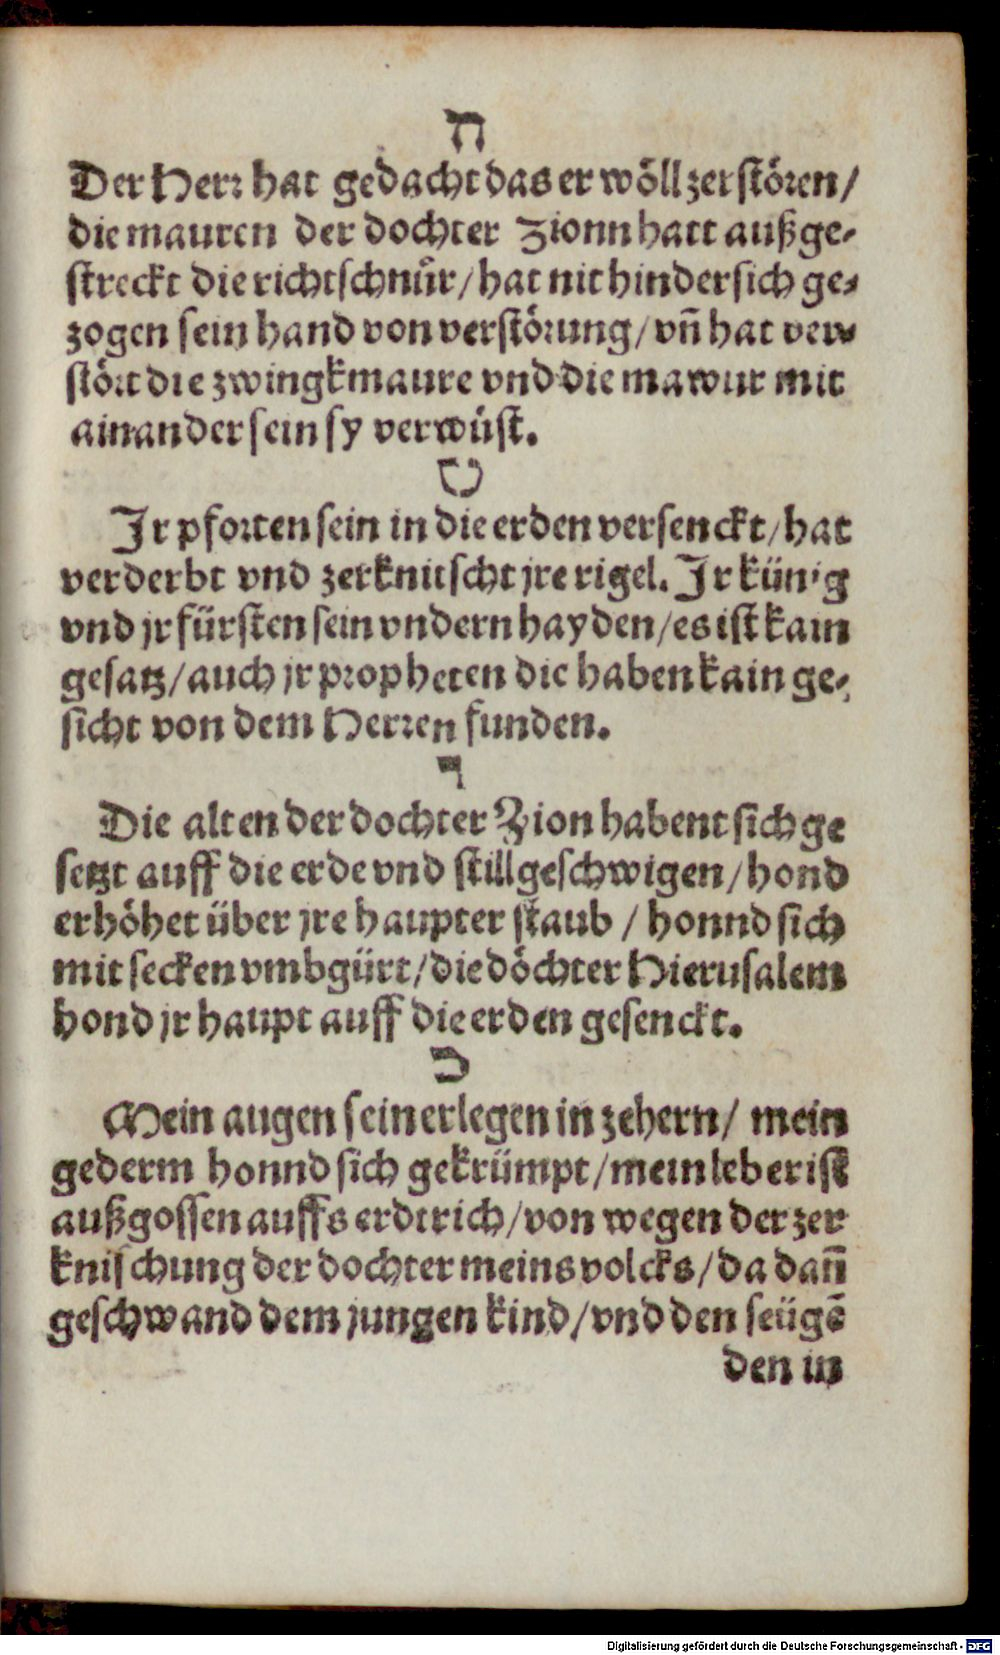 ח
Der Herr hat gedacht das er wöll zerstören/
die mauren der dochter Zionn hatt außge-
streckt die richtschnůr/ hat nit hindersich ge-
zogen sein hand von verstörung/ vñ hat ver-
stört die zwingkmaure vnd die mawur mit
ainander sein sy verwüst.
ט
Jr pforten sein in die erden versenckt/ hat
verderbt vnd zerknitscht jre rigel. Jr künig
vnd jr fürsten sein vndern hayden/ es ist kain
gesatz/ auch jr propheten die haben kain ge-
sicht von dem Herren funden.
י
Die alten der dochter Zion habent sich ge
setzt auff die erde vnd still geschwigen/ hond
erhöhet über jre haupter staub / honnd sich
mit secken vmbgürt/ die döchter Hierusalem
hond jr haupt auff die erden gesenckt.
כ
Mein augen sein erlegen in zehern/ mein
gederm honnd sich gekrümpt/ mein leber ist
außgossen auffs erdtrich/ von wegen der zer
knischung der dochter meins volcks/ da dañ
geschwand dem jungen kind/ vnd den seügē
den in
Digitalisierung gefördert durch die Deutsche Forschungsgemeinschaft - DFG